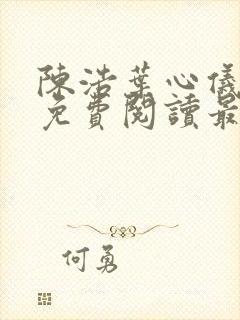 陳浩葉心儀
免費閱讀最
何勇